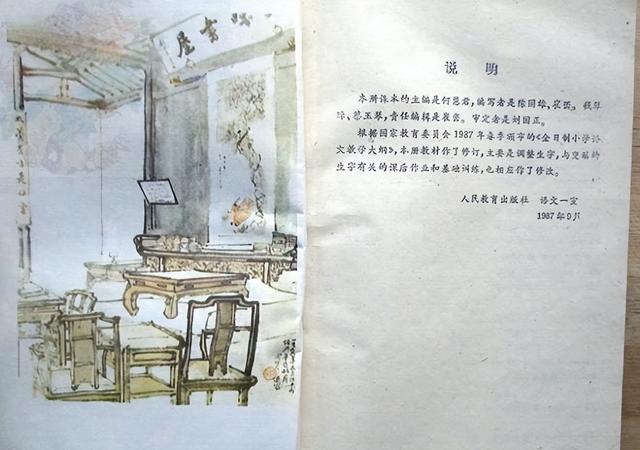 書屋
说 明
本册课本的主编是何慧君，编写者是陈国雄、崔峦、
蔡玉琴，责任编辑是崔峦。审定者是刘国正。
根据国家教育委员会1987年春季颁布的《全日制小学语
文教学大纲》，本册教材作了修订，主要是调整生字，与变动的
生字有关的课后作业和基础训练，也相应作了修改。
人民教育出版社 语文一室
1987年9月